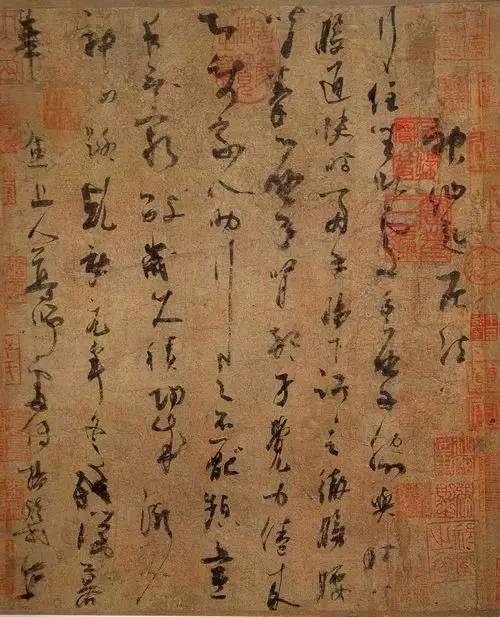 神仙起居法
行住坐卧處手摩脅與肚心
腹通快時兩手腸下踞踞之徹膀腰
背拳摩腎部才覺力倦來
即使家人助行之不厭頻晝
夜無窮數歲久積功成漸入
神仙路乾祐元年冬殘臘暮
華陽焦上人尊師處傳楊凝式